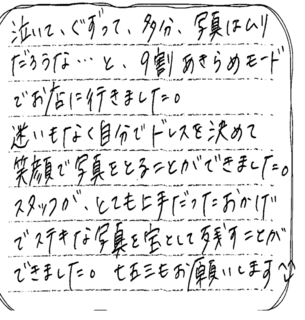 泣いて、ぐずって、多分、写真はムリ
だろうな…と、9割あきらめモード
でお店に行きました。
迷いもなく自分でドレスを決めて
笑顔で写真をとることができました。
スタッフが、とても上手だったおかげ
でステキな写真を宝として残すことが
できました。七五三もお願いします